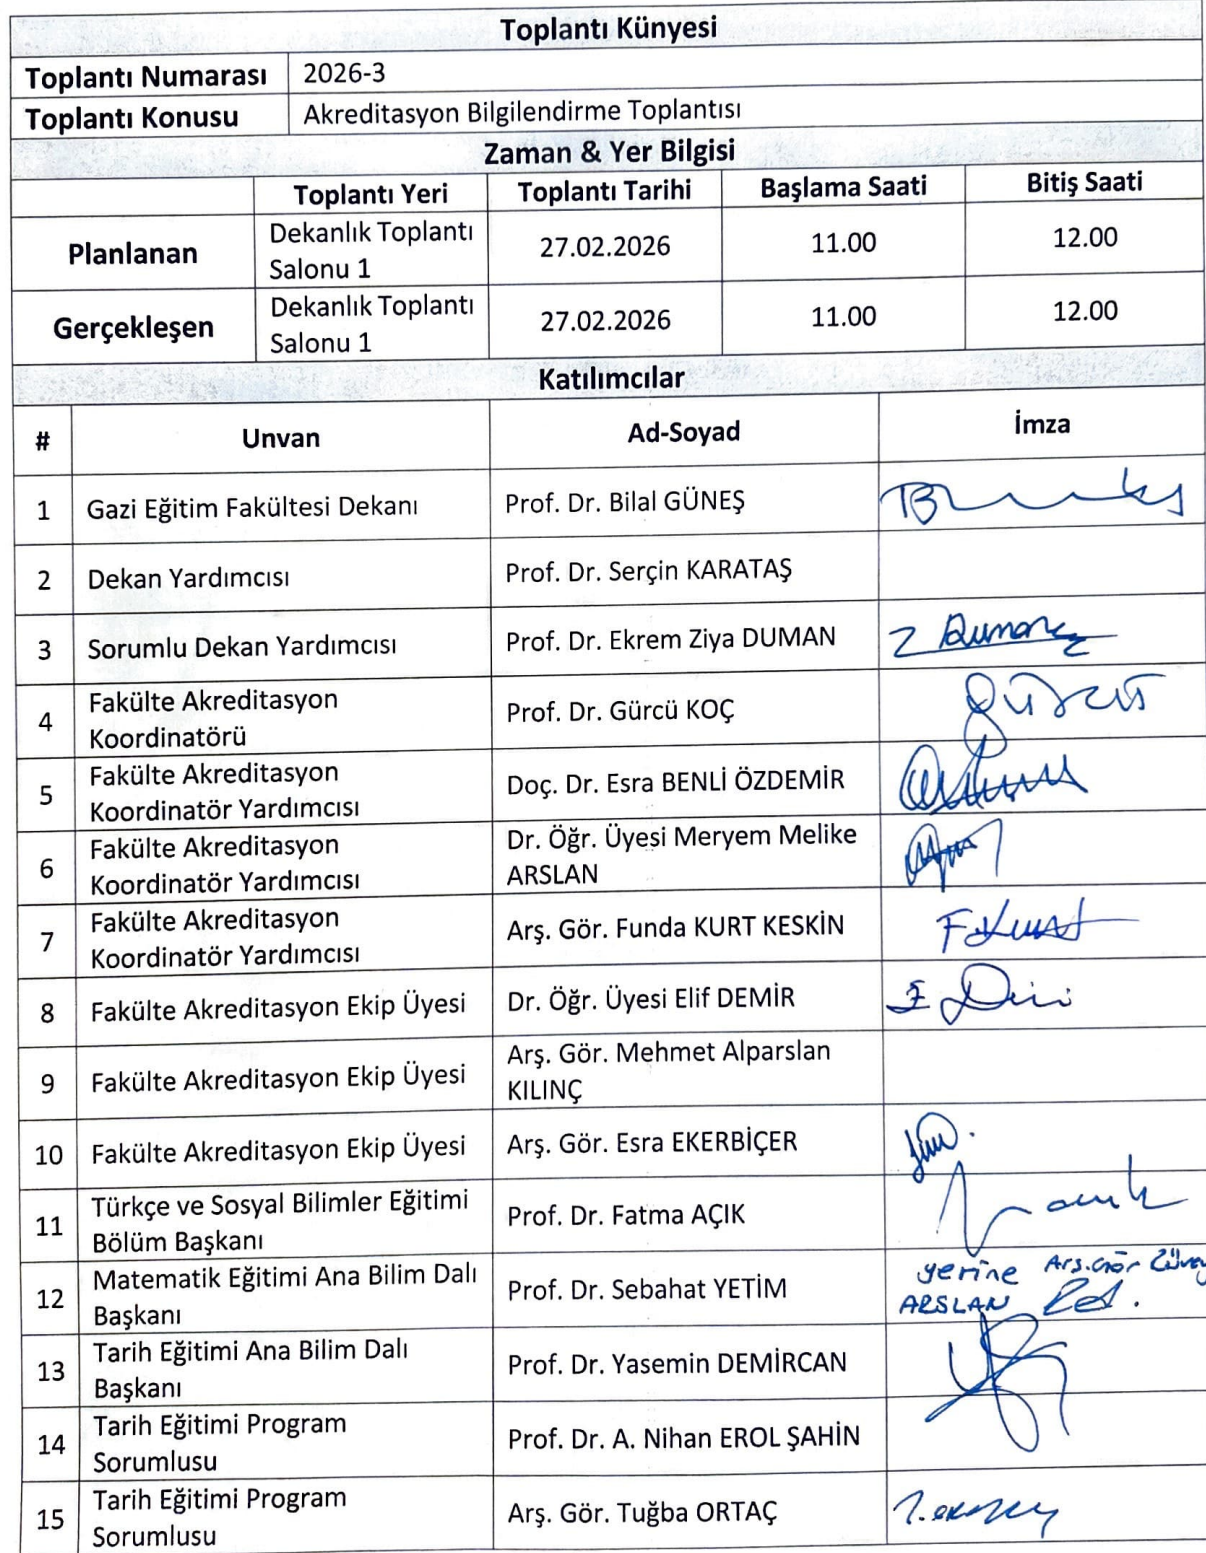 Toplantı Künyesi
Toplantı Numarası 2026-3
Toplantı Konusu Akreditasyon Bilgilendirme Toplantısı
Zaman & Yer Bilgisi
Toplantı Yeri Toplantı Tarihi Başlama Saati Bitiş Saati
Planlanan Dekanlık Toplantı Salonu 1 27.02.2026 11.00 12.00
Gerçekleşen Dekanlık Toplantı Salonu 1 27.02.2026 11.00 12.00
Katılımcılar
# Unvan Ad-Soyad İmza
1 Gazi Eğitim Fakültesi Dekanı Prof. Dr. Bilal GÜNEŞ
2 Dekan Yardımcısı Prof. Dr. Serçin KARATAŞ
3 Sorumlu Dekan Yardımcısı Prof. Dr. Ekrem Ziya DUMAN
4 Fakülte Akreditasyon Koordinatörü Prof. Dr. Gürcü KOÇ
5 Fakülte Akreditasyon Koordinatör Yardımcısı Doç. Dr. Esra BENLİ ÖZDEMİR
6 Fakülte Akreditasyon Koordinatör Yardımcısı Dr. Öğr. Üyesi Meryem Melike ARSLAN
7 Fakülte Akreditasyon Koordinatör Yardımcısı Arş. Gör. Funda KURT KESKİN F. Kurt
8 Fakülte Akreditasyon Ekip Üyesi Dr. Öğr. Üyesi Elif DEMİR
9 Fakülte Akreditasyon Ekip Üyesi Arş. Gör. Mehmet Alparslan KILINÇ
10 Fakülte Akreditasyon Ekip Üyesi Arş. Gör. Esra EKERBİÇER
11 Türkçe ve Sosyal Bilimler Eğitimi Bölüm Başkanı Prof. Dr. Fatma AÇIK
12 Matematik Eğitimi Ana Bilim Dalı Başkanı Prof. Dr. Sebahat YETİM yerine Arş. Gör ARSLAN
13 Tarih Eğitimi Ana Bilim Dalı Başkanı Prof. Dr. Yasemin DEMİRCAN
14 Tarih Eğitimi Program Sorumlusu Prof. Dr. A. Nihan EROL ŞAHİN
15 Tarih Eğitimi Program Sorumlusu Arş. Gör. Tuğba ORTAÇ